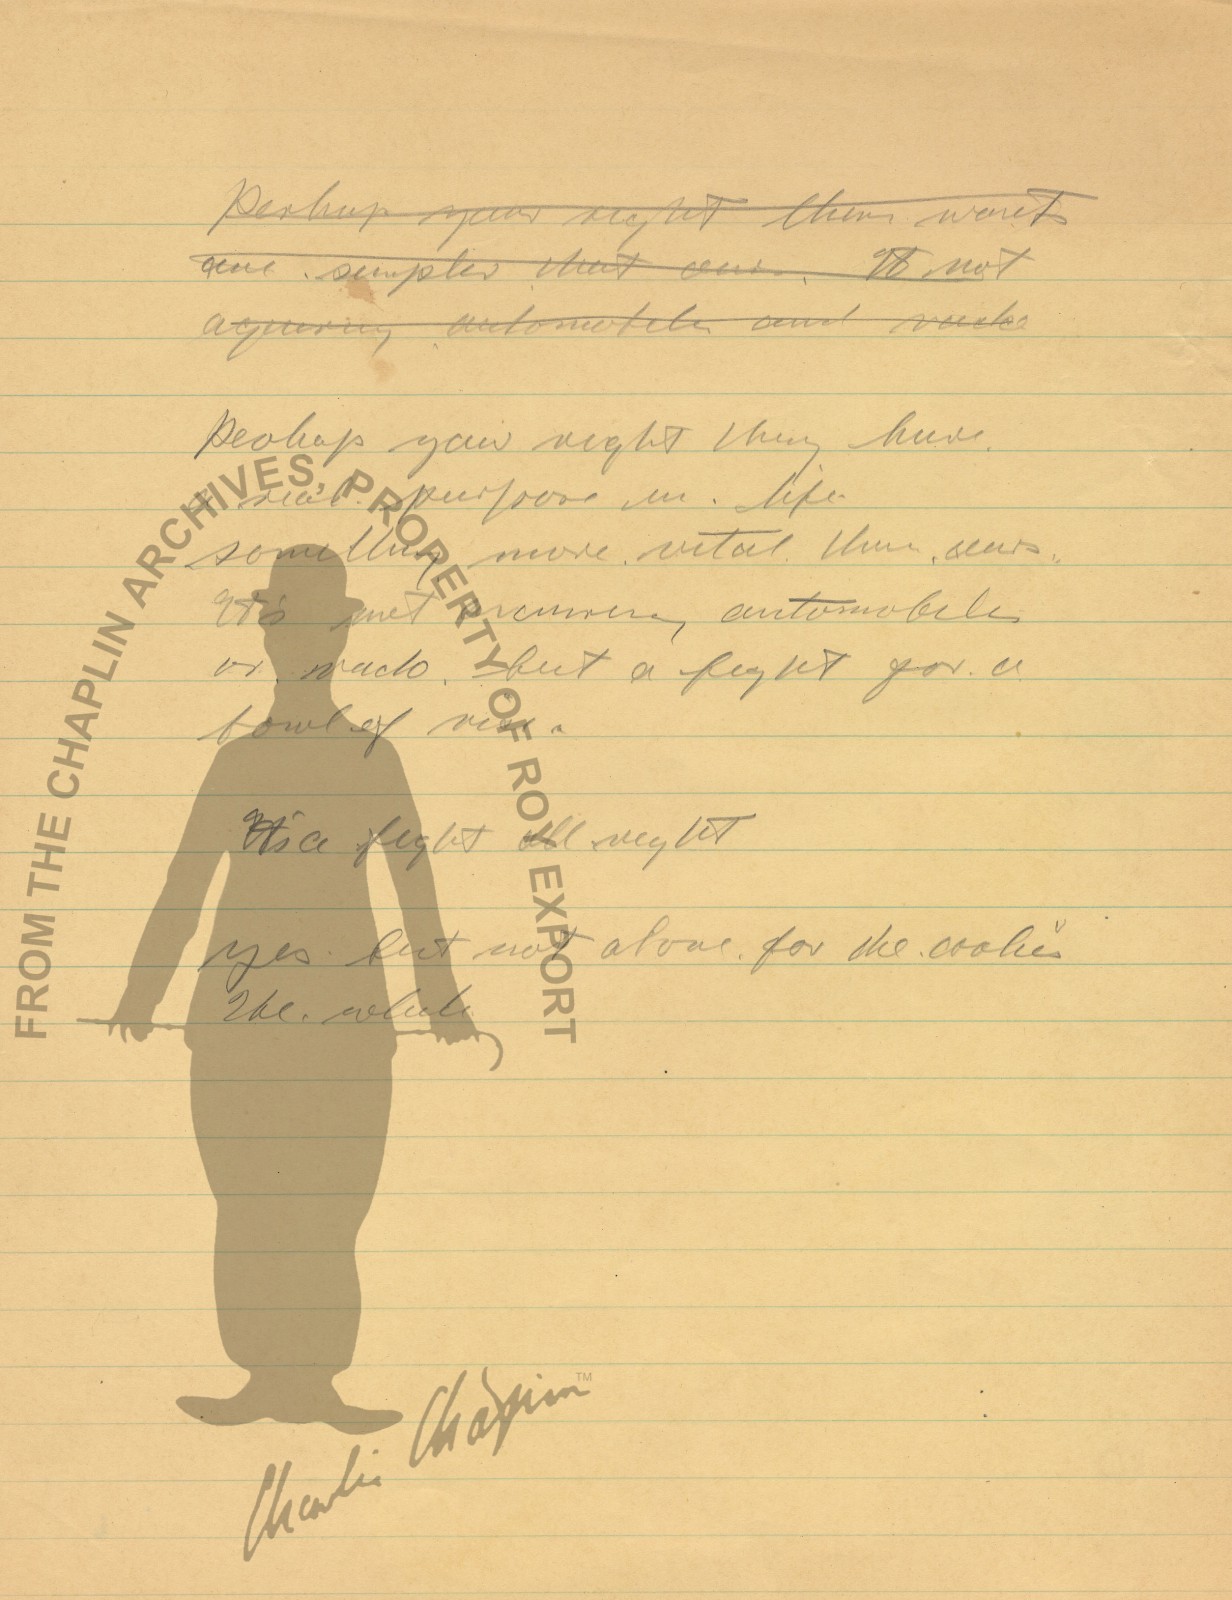 Perhap your right there wants
are simpler that ours. It not
aquiring automobiles and
Perhap your right they have
a real purpose in life
something more vital than ours.
It's not aquiring automobiles
or but a fight for a
bowl of rice.
It's a fight all right
yes but not alone for the coolies
The whole
FROM THE CHAPLIN ARCHIVES, PROPERTY OF ROY EXPORT
Charlie Chaplin™